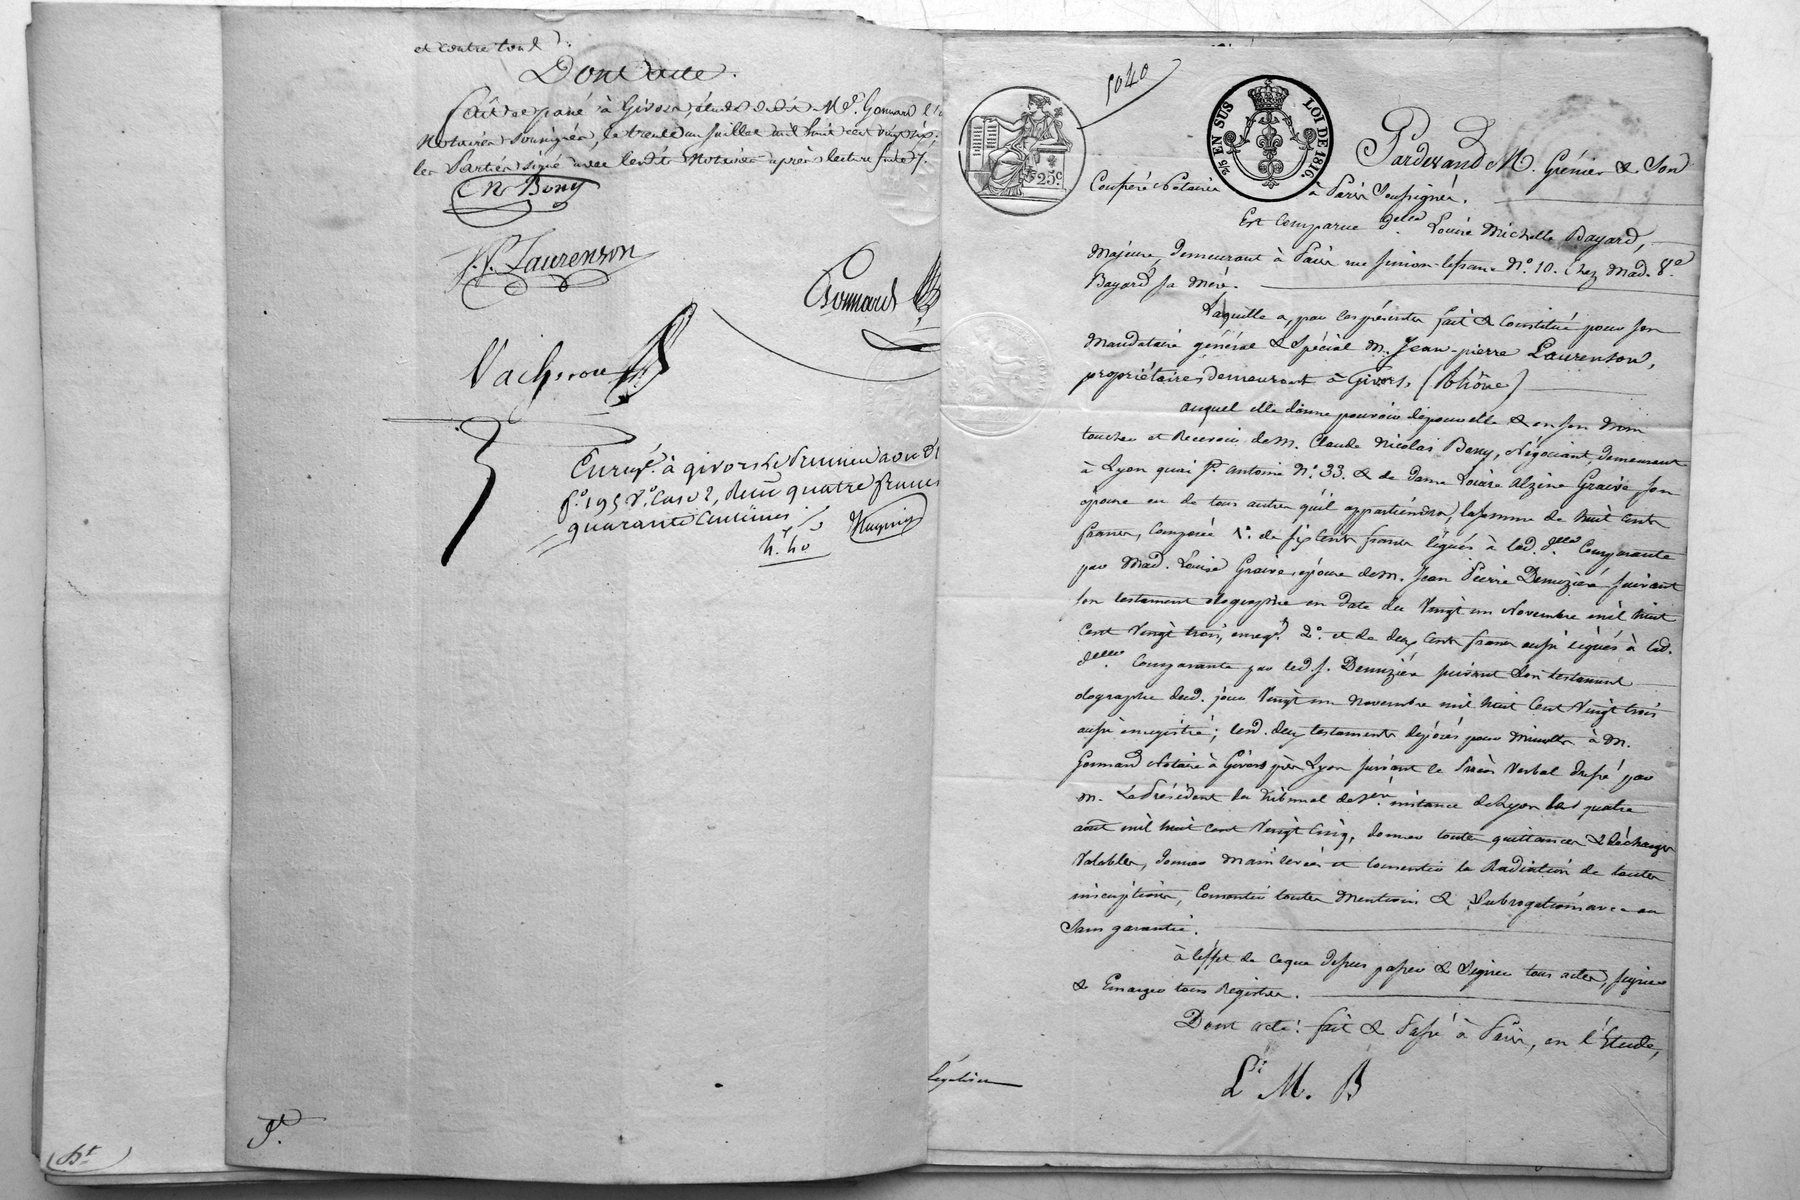 et contre tout
Dont acte.
Fait et passé à Givors, étude dudit Me. Gonnard l'un
Notaires soussignés, le trente un Juillet mil huit cent vingt six.
les Parties signé avec lesdits Notaires après lecture faite.
CN Bony
J.P. Laurenson
Gonnard
Vacheron
Enregé. à givors le Premier aout
fo. 195 Vo. Case 2, Reçu quatre francs
quarante Centimes
4. 40
5040
25c
2/5 EN SUS
LOI DE 1816.
Pardevant M. Grénier & Son
Confrère Notaires à Paris Soussignés.
Est Comparue delle Louise Michelle Bayard,
Majeure, demeurant à Paris rue Simon-lefranc No. 10. Chez Mad. Ve
Bayard sa mère.
Laquelle a, par ces présentes fait & Constitué pour son
Mandataire général & Spécial M. Jean-pierre Laurenson,
propriétaire, demeurant à Givors, (Rhône)
auquel elle donne pouvoir de pour elle & en son nom
toucher et Recevoir de M. Claude Nicolas Bony, Négociant, demeurant
à Lyon quai St. Antoine No. 33. & de Dame Alzine Graive son
épouse ou de tous autres qu'il appartiendra, la somme de huit cents
francs, Composée 1o. de six Cents francs légués à lad. delle Comparante
par Mad. Louise Graive, épouse de M. Jean Pierre Demizieé suivant
son testament olographe en date du Vingt un Novembre mil huit
Cent Vingt trois, enregé. 2o. et de deux Cents francs aussi légués à lad.
delle Comparante par led. S. Demizieé suivant Son testament
olographe dud. jour Vingt un Novembre mil huit Cent Vingt trois
aussi enregistré; lesd. deux testaments déposés pour Minutes à M.
Gonnard Notaire à Givors près Lyon suivant le Procès Verbal dressé par
M. Le Président du Tribunal de 1ere instance de Lyon le quatre
août mil huit cent Vingt Cinq, donner toutes quittances & décharges
Valables, donner Main levées et Consentir la Radiation de toutes
inscriptions, Consentir toutes Mentions & Subrogations avec ou
Sans garantie.
à l'effet de ce que dessus passer & Signer tous actes,
& Emarger tous Registres.
Dont acte: fait & Passé à Paris, en l'Etude,
L. M. B